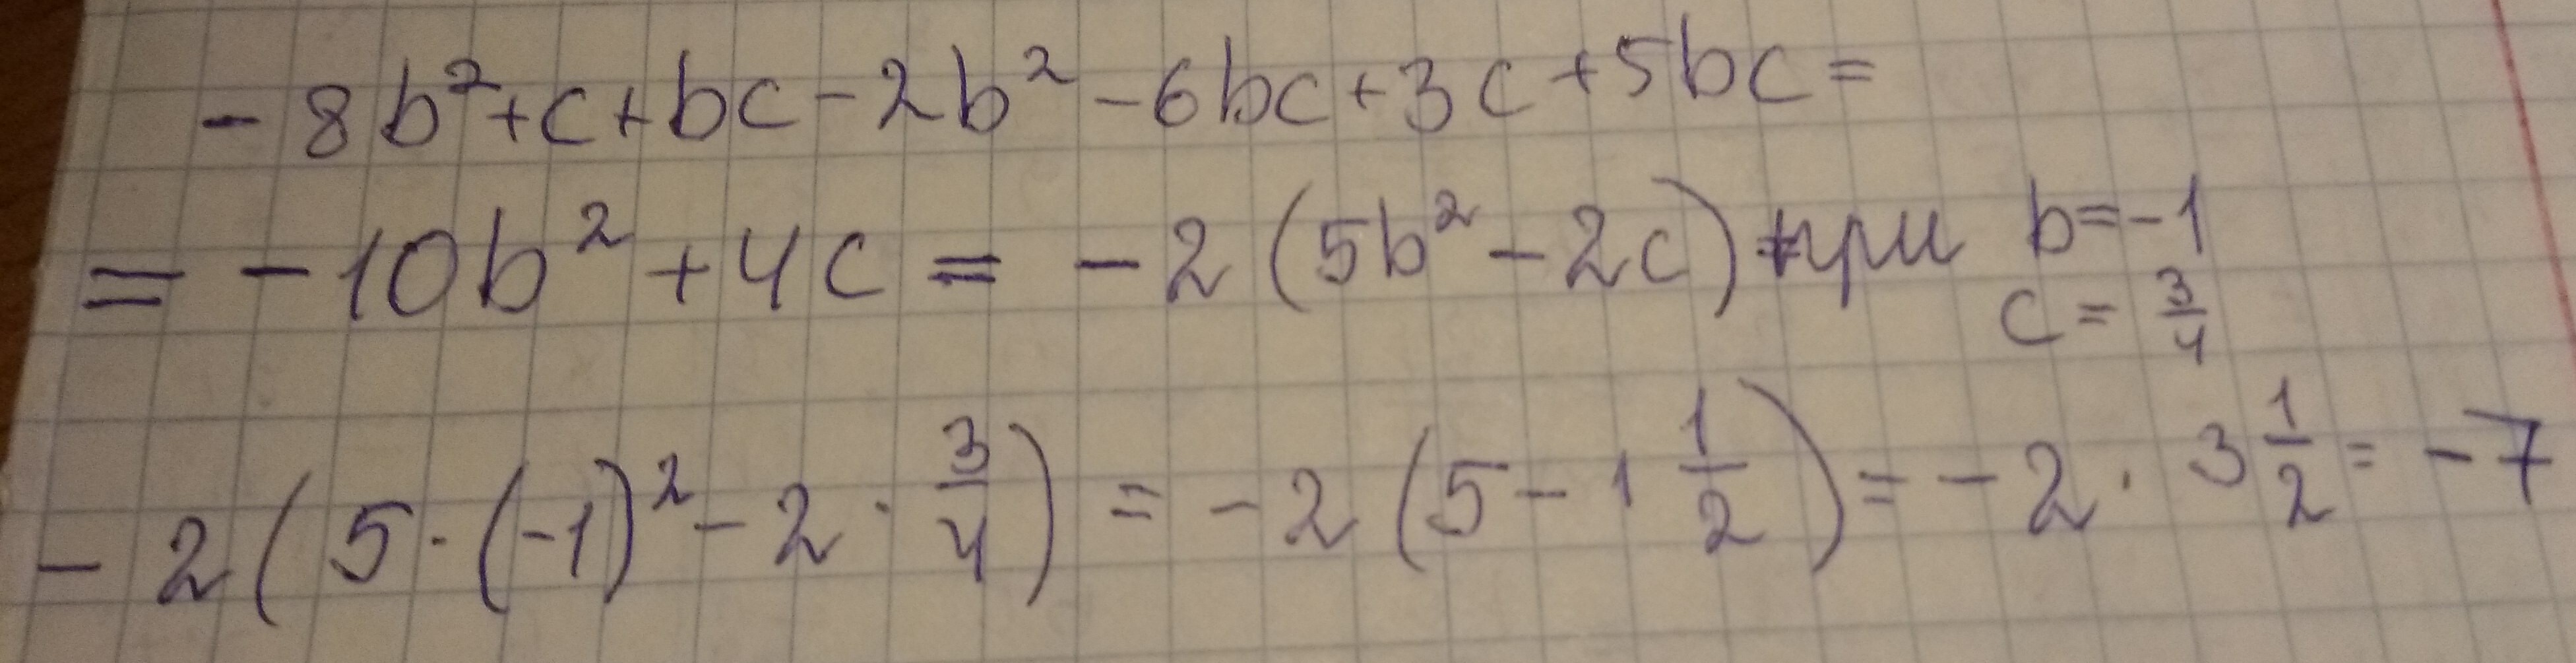 -8b²+c+bc-2b²-6bc+3c+5bc=
=-10b²+4c=-2(5b²-2c) при b=-1
c=3/4
-2(5·(-1)²-2·3/4)=-2(5-1 1/2)=-2·3 1/2=-7